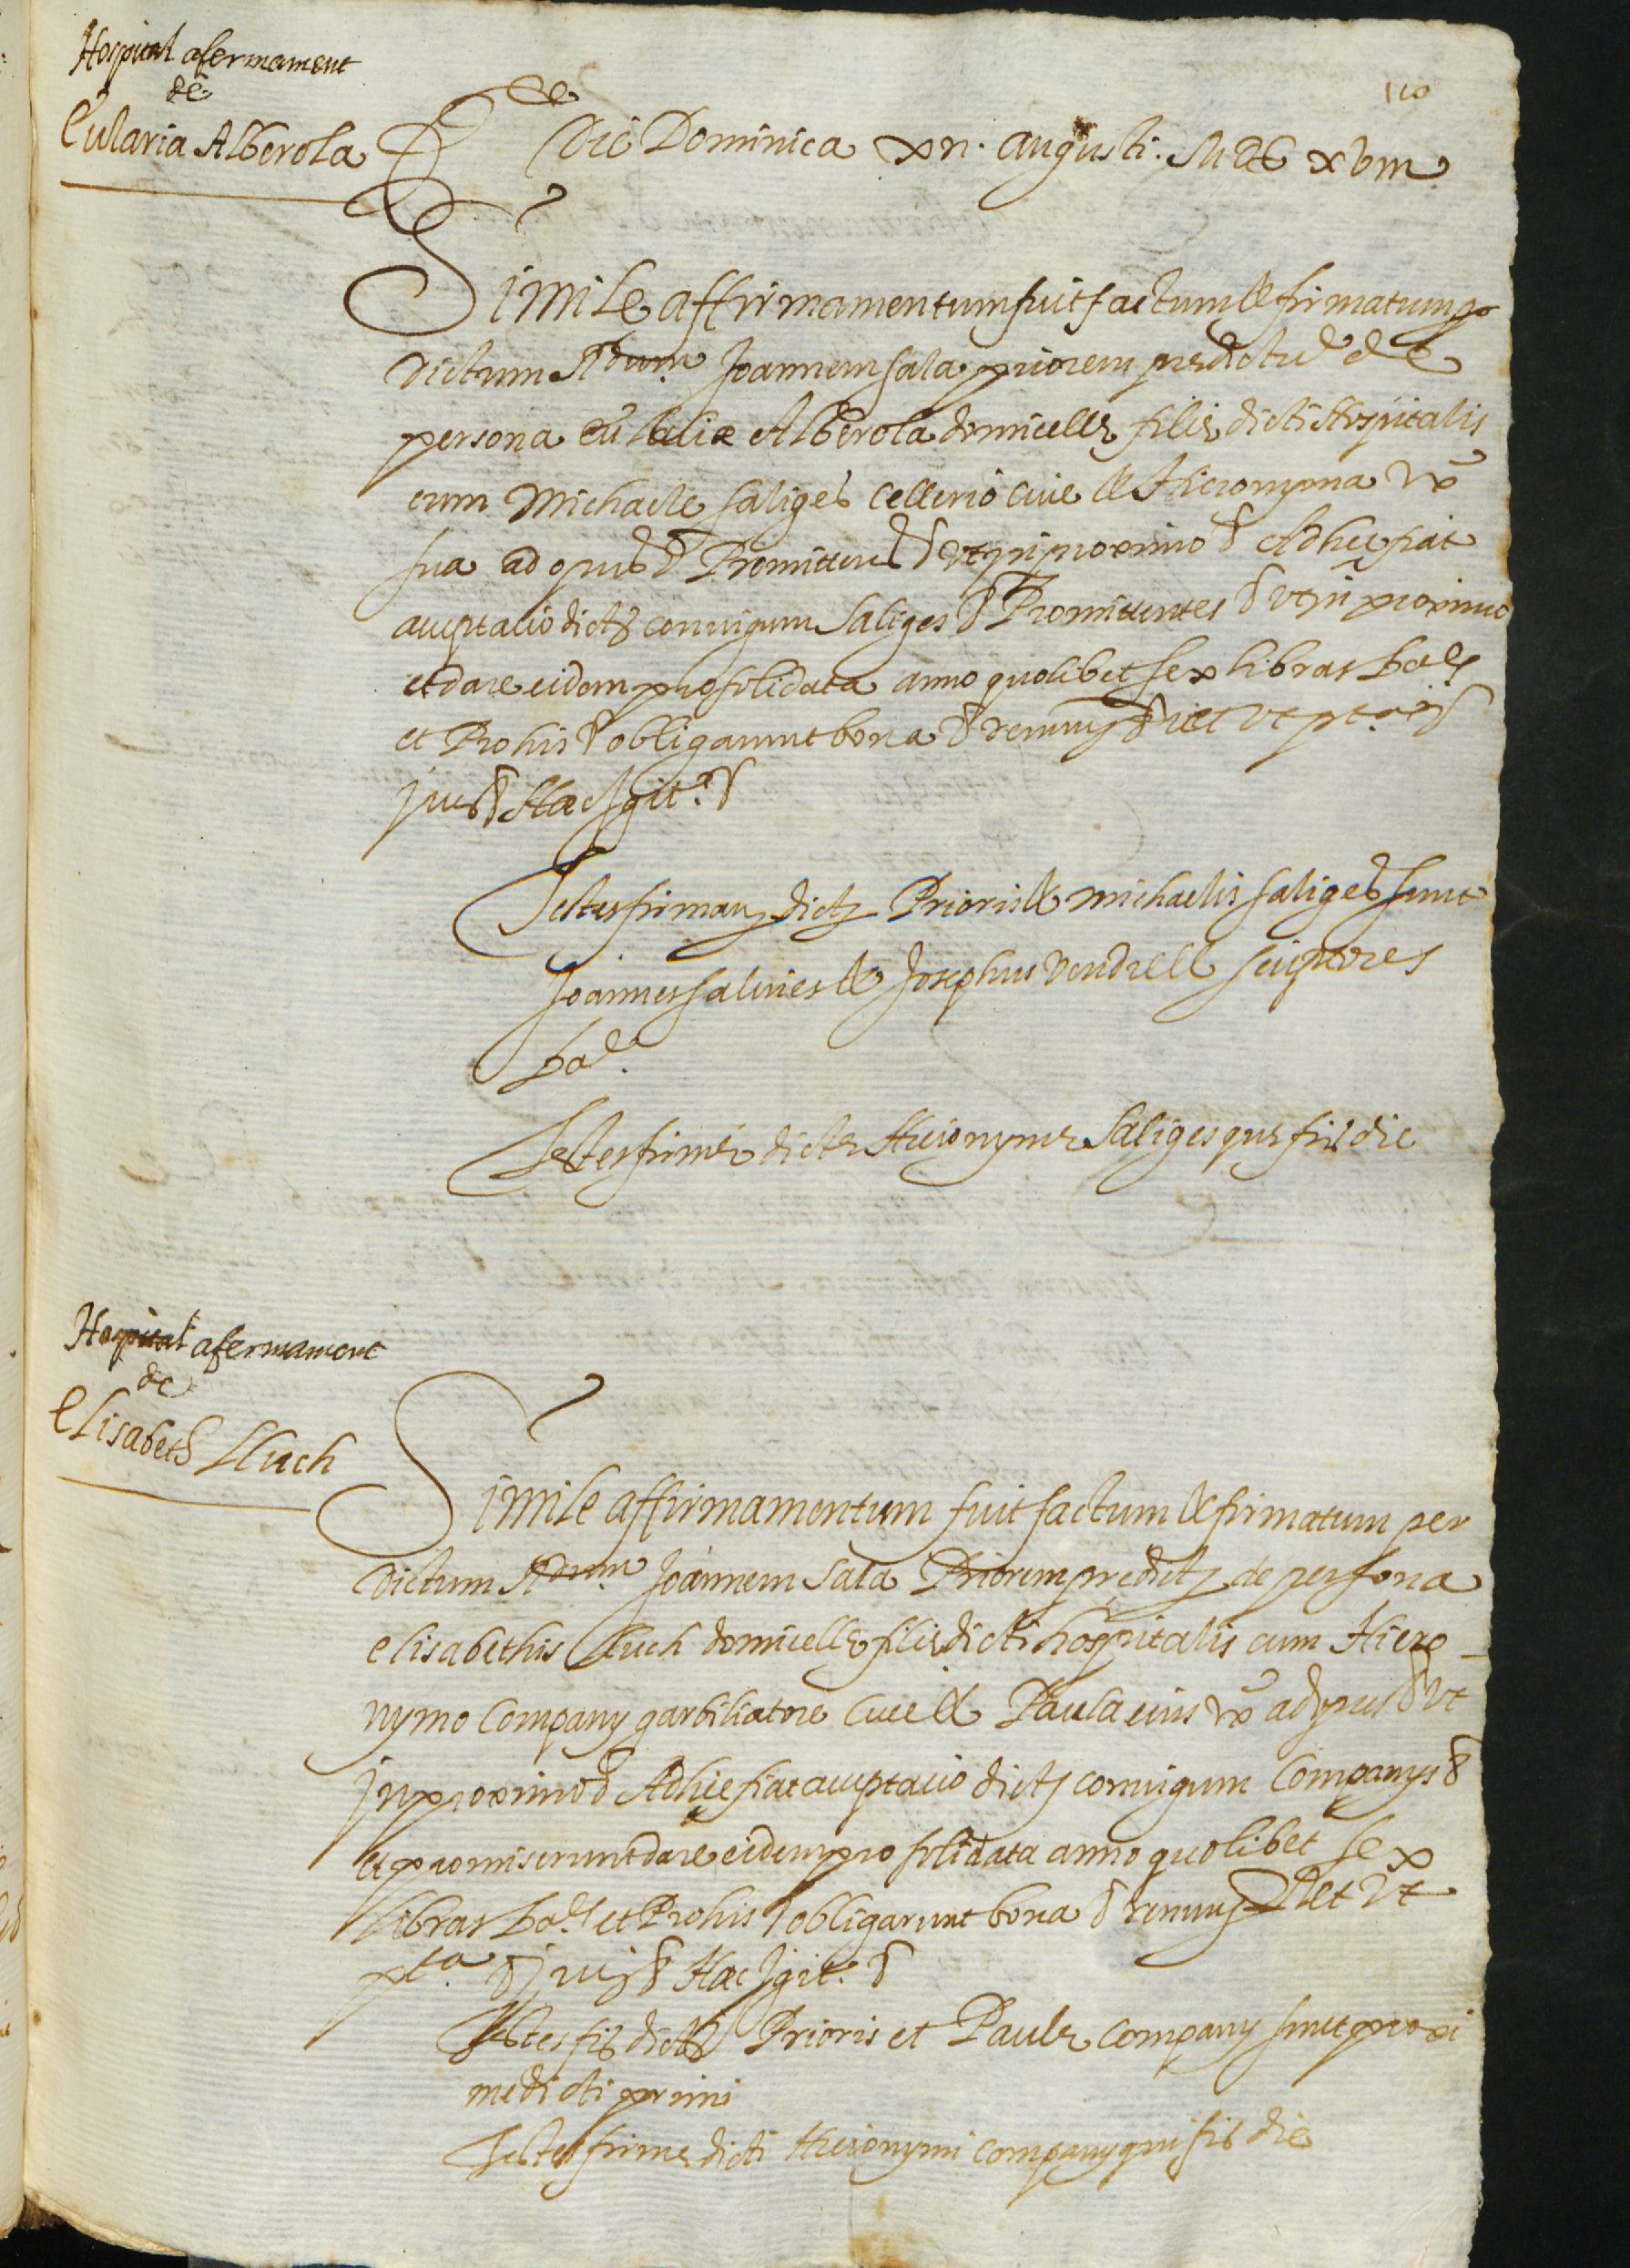 Hospital afermament
de
Eularia Alberola
110
Die Dominica xii. augusti. MDC xviii
Simile affirmamentum fuit factum & firmatum per
dictum Rdum. Joannem Sala priorem predictu de
persona eulalie Alberola domicelle filie dicti Hospitalis
cum Michaele saliges cellerio cive & Hieronyma ux
sua ad opus & Promittens & ut in proximo & Ad hec fiat
acceptatio dictor coniugum Saliges & Promittentes & ut in proximo
et dare eidem pro solidata anno quolibet sex libras bar
et Pro his & obligarunt bona & renun & et ut pta &
jur & Hec igit. &
Testes firmar dictor Prioris & Michaelis saliges sunt
Joannes salines & Josephus Vendrell scriptores
bar.
Testes firme dicte Hieronyme Saliges que fir die
Hospital afermament
de
Elisabeth Lluch
Simile affirmamentum fuit factum & firmatum per
dictum Rdum. Joannem Sala Priorem predict de persona
elisabethis lluch domicelle filie dicti hospitalis cum Hiero
nymo Company garbiliatore cive & Paula eius ux ad opus & ut
in proximo & Ad hec fiat acceptatio dictor coniugum Companys &
et promiserunt dare eidem pro solidata anno quolibet sex
libras bar et Pro his & obligarunt bona & renun & et ut
pta. & jur & Hec igit. &
Testes fir dictor Prioris et Paule Company sunt proxi
me dicti primi
Testes firme dicti Hieronymi Company qui fir die